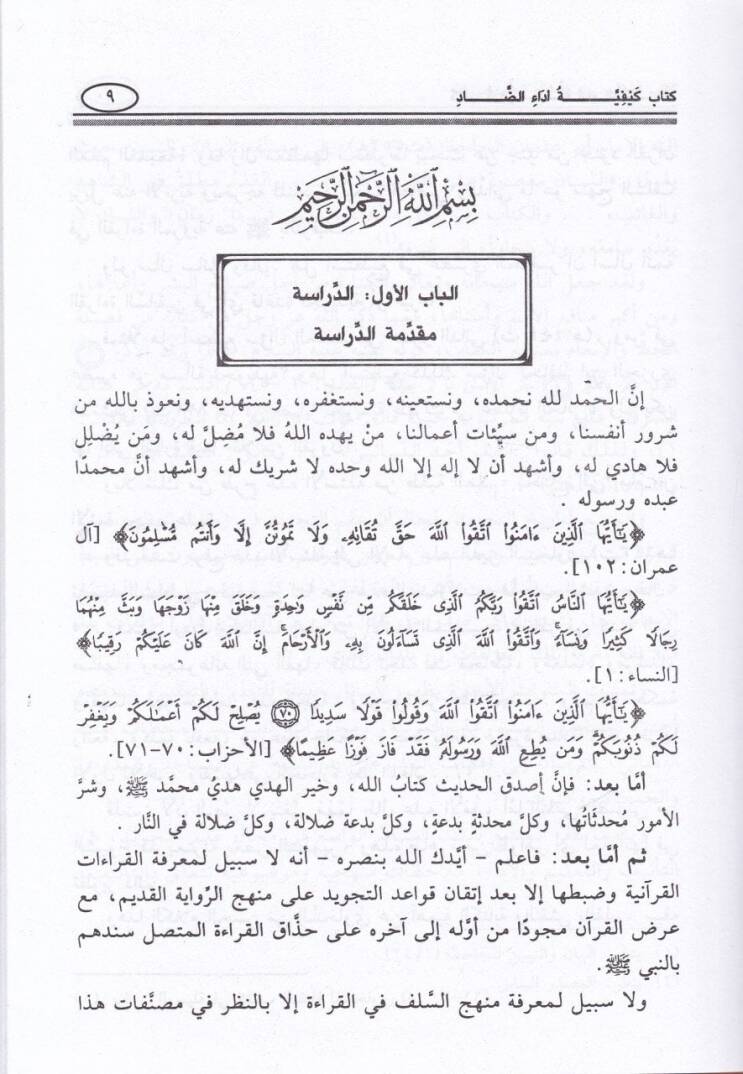 كتاب كَيْفِيَّـــــةُ أداءِ الضَّـــادِ
٩
بِسْمِ اللَّهِ الرَّحْمَٰنِ الرَّحِيمِ
الباب الأول: الدِّراسة
مقدِّمة الدِّراسة
إنَّ الحمْد لله نحمده، ونستعينه، ونستغفره، ونستهديه، ونعوذ بالله من
شرور أنفسنا، ومن سيِّئات أعمالنا، منْ يهده اللهُ فلا مُضلَّ له، ومَن يُضْلِل
فلا هادي له، وأشهد أن لا إله إلا الله وحده لا شريك له، وأشهد أنَّ محمدا
عبده ورسوله
﴿يَٰٓأَيُّهَا ٱلَّذِينَ ءَامَنُوا۟ ٱتَّقُوا۟ ٱللَّهَ حَقَّ تُقَاتِهِۦ وَلَا تَمُوتُنَّ إِلَّا وَأَنتُم مُّسْلِمُونَ﴾ [آل
عمران:١٠٢]
﴿يَٰٓأَيُّهَا ٱلنَّاسُ ٱتَّقُوا۟ رَبَّكُمُ ٱلَّذِى خَلَقَكُم مِّن نَّفْسٍ وَٰحِدَةٍ وَخَلَقَ مِنْهَا زَوْجَهَا وَبَثَّ مِنْهُمَا
رِجَالًا كَثِيرًا وَنِسَآءً ۚ وَٱتَّقُوا۟ ٱللَّهَ ٱلَّذِى تَسَآءَلُونَ بِهِۦ وَٱلْأَرْحَامَ ۚ إِنَّ ٱللَّهَ كَانَ عَلَيْكُمْ رَقِيبًا﴾
[النساء:١].
﴿يَٰٓأَيُّهَا ٱلَّذِينَ ءَامَنُوا۟ ٱتَّقُوا۟ ٱللَّهَ وَقُولُوا۟ قَوْلًا سَدِيدًا ٧٠ يُصْلِحْ لَكُمْ أَعْمَٰلَكُمْ وَيَغْفِرْ
لَكُمْ ذُنُوبَكُمْ ۗ وَمَن يُطِعِ ٱللَّهَ وَرَسُولَهُۥ فَقَدْ فَازَ فَوْزًا عَظِيمًا﴾ [الأحزاب:٧٠-٧١].
أمَّا بعد: فإنَّ أصدق الحديث كتابُ الله، وخير الهدي هديُ محمَّد ﷺ، وشرَّ
الأمور مُحدثاتُها، وكلَّ محدثةٍ بدعة، وكلَّ بدعة ضلالة، وكلَّ ضلالة في النَّار .
ثم أمَّا بعد: فاعلم - أيَّدك الله بنصره - أنه لا سبيل لمعرفة القراءات
القرآنية وضبطها إلا بعد إتقان قواعد التجويد على منهج الرِّواية القديم، مع
عرض القرآن مجودًا من أوَّله إلى آخره على حذَّاق القراءة المتصل سندهم
بالنبي ﷺ.
ولا سبيل لمعرفة منهج السَّلف في القراءة إلا بالنظر في مصنَّفات هذا